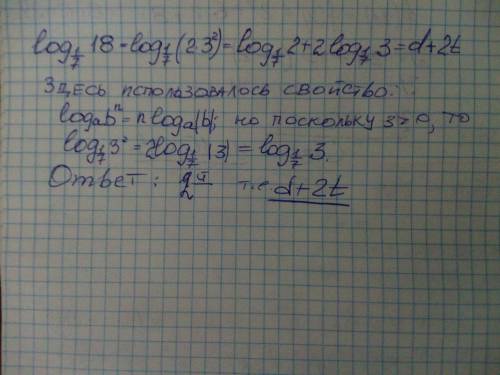 log_{1/7} 18 = log_{1/7} (2·3²) = log_{1/7} 2 + 2 log_{1/7} 3 = d + 2t
Здесь использовалось свойство:
log_a bⁿ = n log_a |b|; но поскольку 3 > 0, то
log_{1/7} 3² = 2 log_{1/7} |3| = log_{1/7} 3.
Ответ: 2й т.е. d + 2t